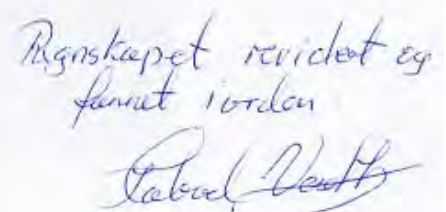 Regnskapet revidert og
funnet iorden